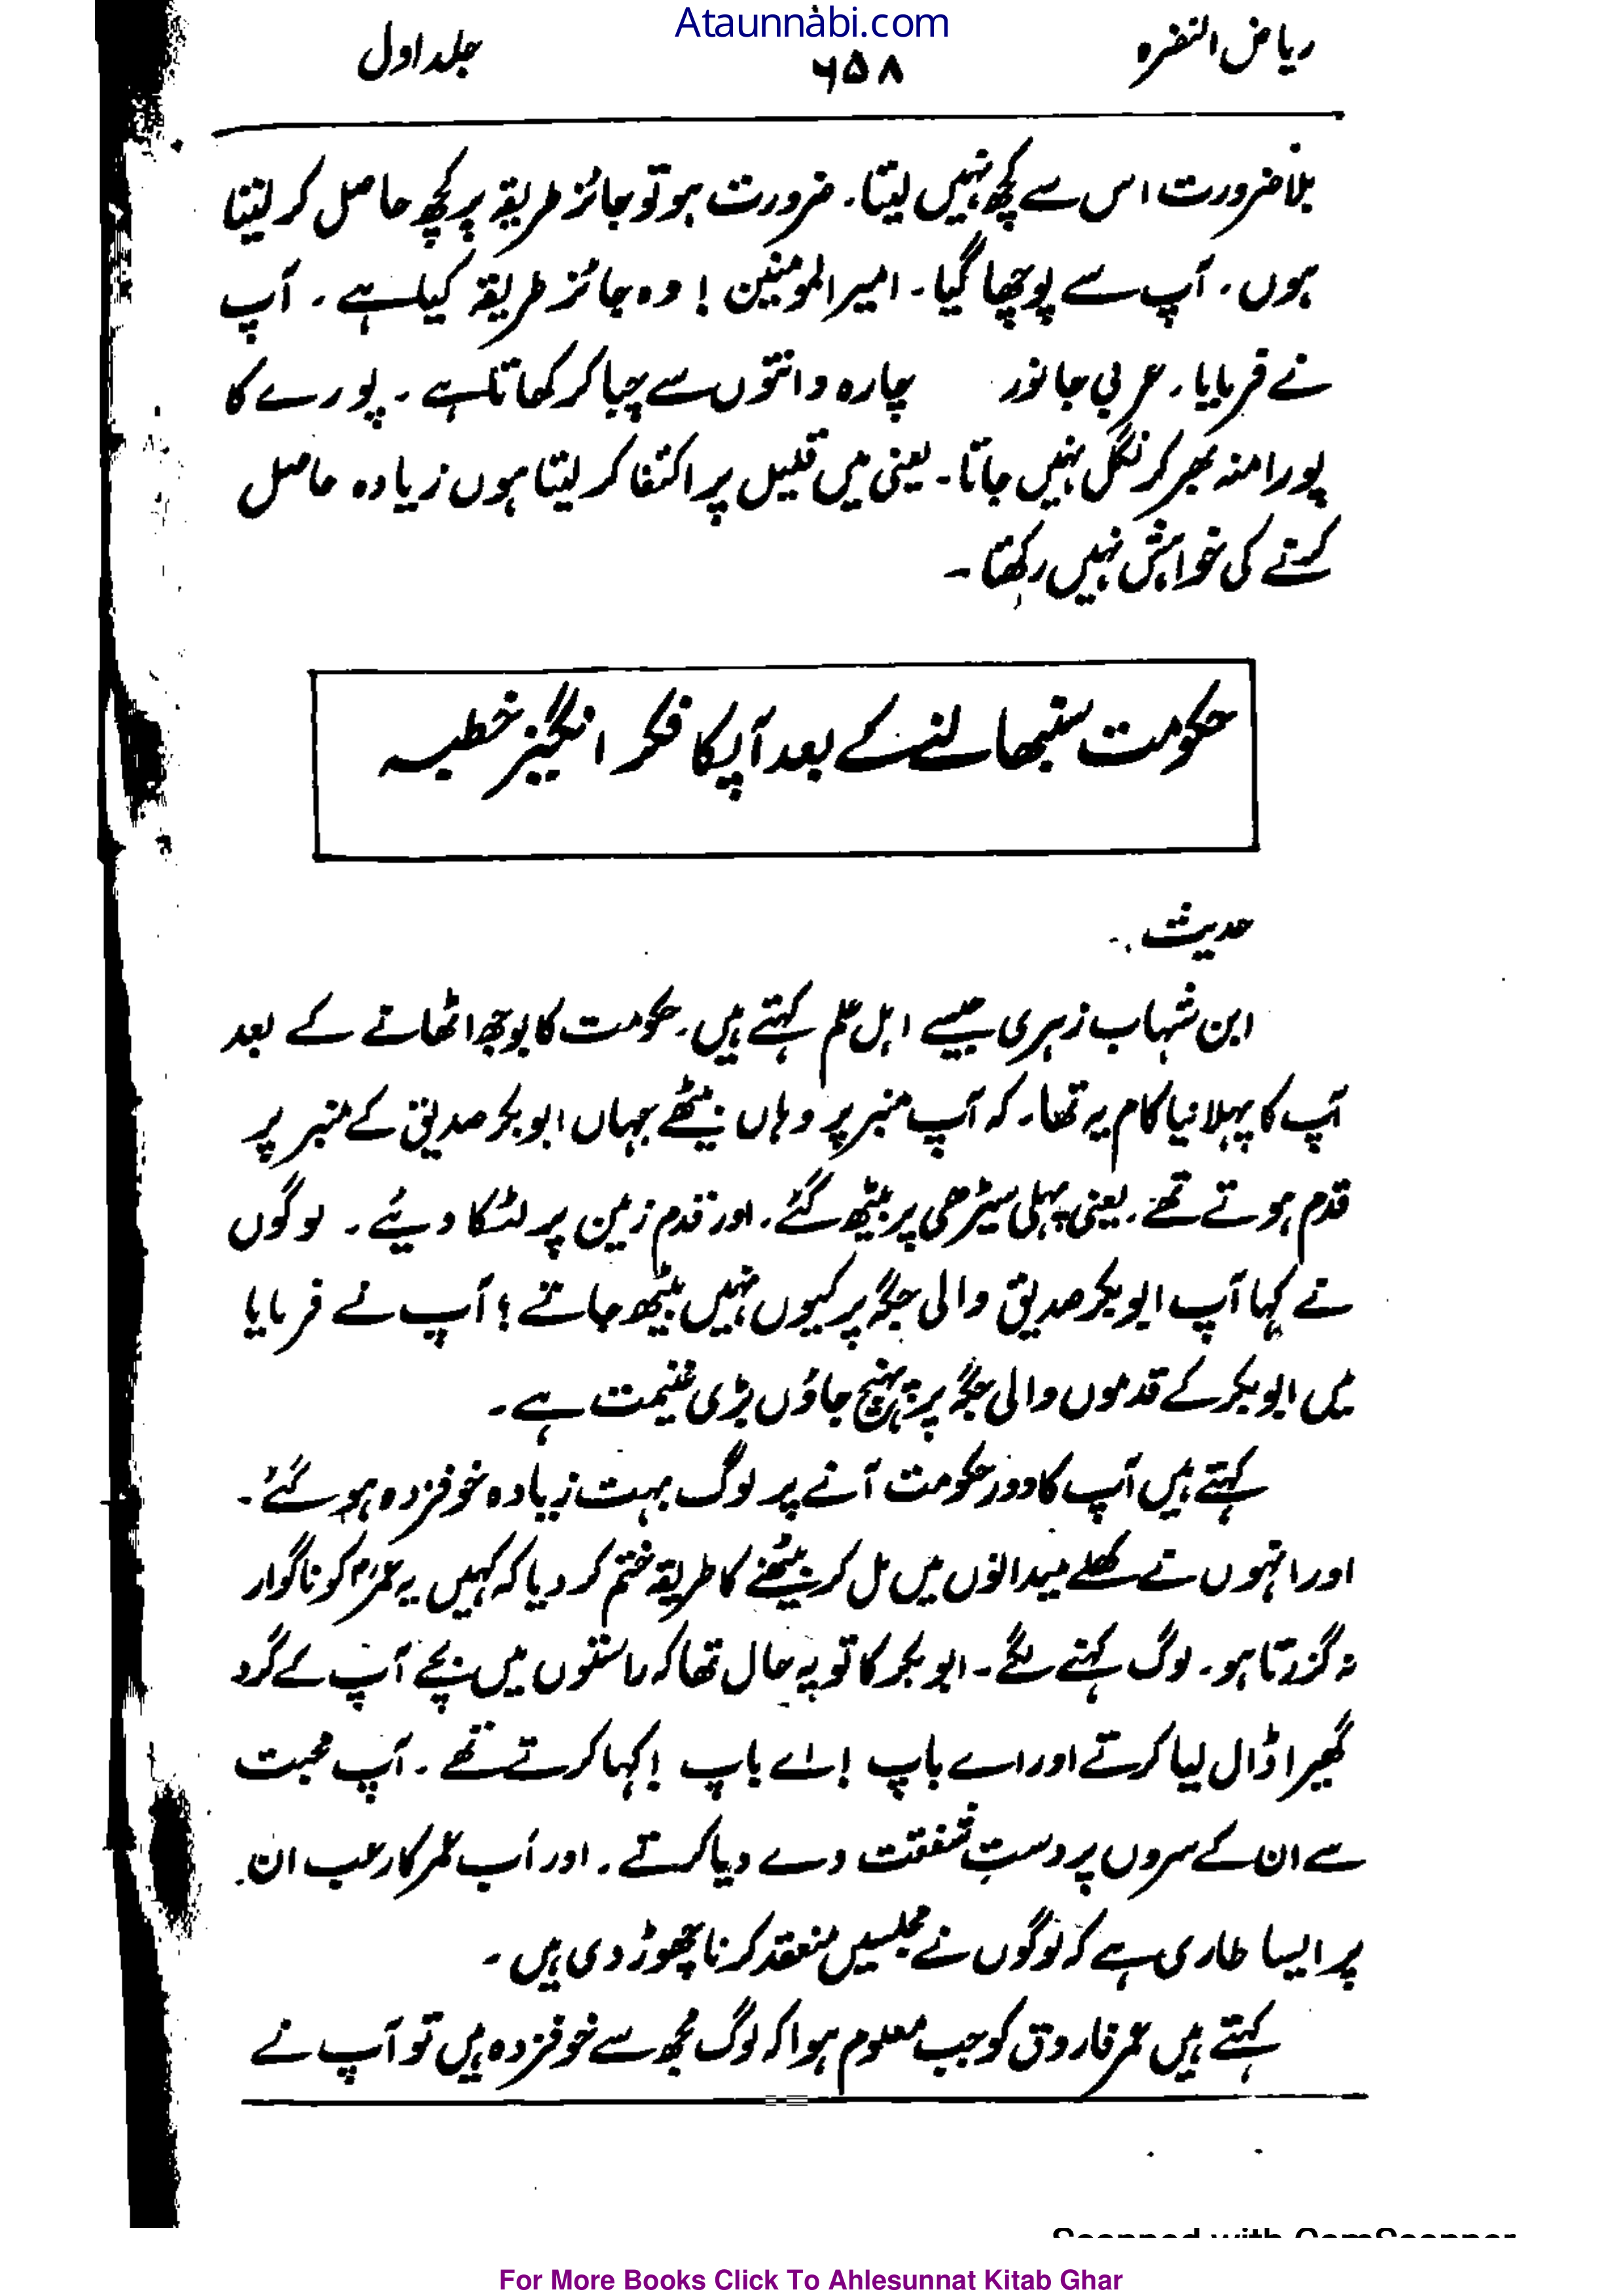 Ataunnabi.com
ریاض النضرہ ۶۵۸ جلد اول
بلا ضرورت اس سے کچھ نہیں لیتا۔ ضرورت ہو تو جائز طریقہ پر کچھ حاصل کر لیتا
ہوں۔ آپ سے پوچھا گیا۔ امیر المومنین! وہ جائز طریقہ کیا ہے۔ آپ
نے فرمایا۔ عربی جانور چارہ دانتوں سے چبا کر کھاتا ہے۔ پورے کا
پورا منہ بھر کر نگل نہیں جاتا۔ یعنی میں قلیل پر اکتفا کر لیتا ہوں زیادہ حاصل
کرنے کی خواہش نہیں رکھتا۔
حکومت سنبھالنے کے بعد آپکا فکر انگیز خطبہ
حدیث۔
ابن شہاب زہری جیسے اہل علم کہتے ہیں۔ حکومت کا بوجھ اٹھانے کے بعد
آپ کا پہلا نیا کام یہ تھا۔ کہ آپ منبر پر وہاں بیٹھے جہاں ابوبکر صدیق کے منبر پر
قدم ہوتے تھے۔ یعنی پہلی سیڑھی پر بیٹھ گئے۔ اور قدم زمین پر لٹکا دیئے۔ لوگوں
نے کہا آپ ابوبکر صدیق والی جگہ پر کیوں نہیں بیٹھ جاتے؟ آپ نے فرمایا
میں ابوبکر کے قدموں والی جگہ پر پہنچ جاؤں بڑی غنیمت ہے۔
کہتے ہیں آپ کا دور حکومت آنے پر لوگ بہت زیادہ خوفزدہ ہو گئے۔
اور انہوں نے کھلے میدانوں میں مل کر بیٹھنے کا طریقہ ختم کر دیا کہ کہیں یہ عمرؓ کو ناگوار
نہ گزرتا ہو۔ لوگ کہنے لگے۔ ابوبکر کا تو یہ حال تھا کہ راستوں میں بچے آپ کے گرد
گھیرا ڈال لیا کرتے اور اے باپ! اے باپ! کہا کرتے تھے۔ آپ محبت
سے ان کے سروں پر دستِ شفقت دے دیا کرتے۔ اور اب عمر کا رعب ان
پر ایسا طاری ہے کہ لوگوں نے مجلسیں منعقد کرنا چھوڑ دی ہیں۔
کہتے ہیں عمر فاروق کو جب معلوم ہوا کہ لوگ مجھ سے خوفزدہ ہیں تو آپ نے
Scanned with CamScanner
For More Books Click To Ahlesunnat Kitab Ghar